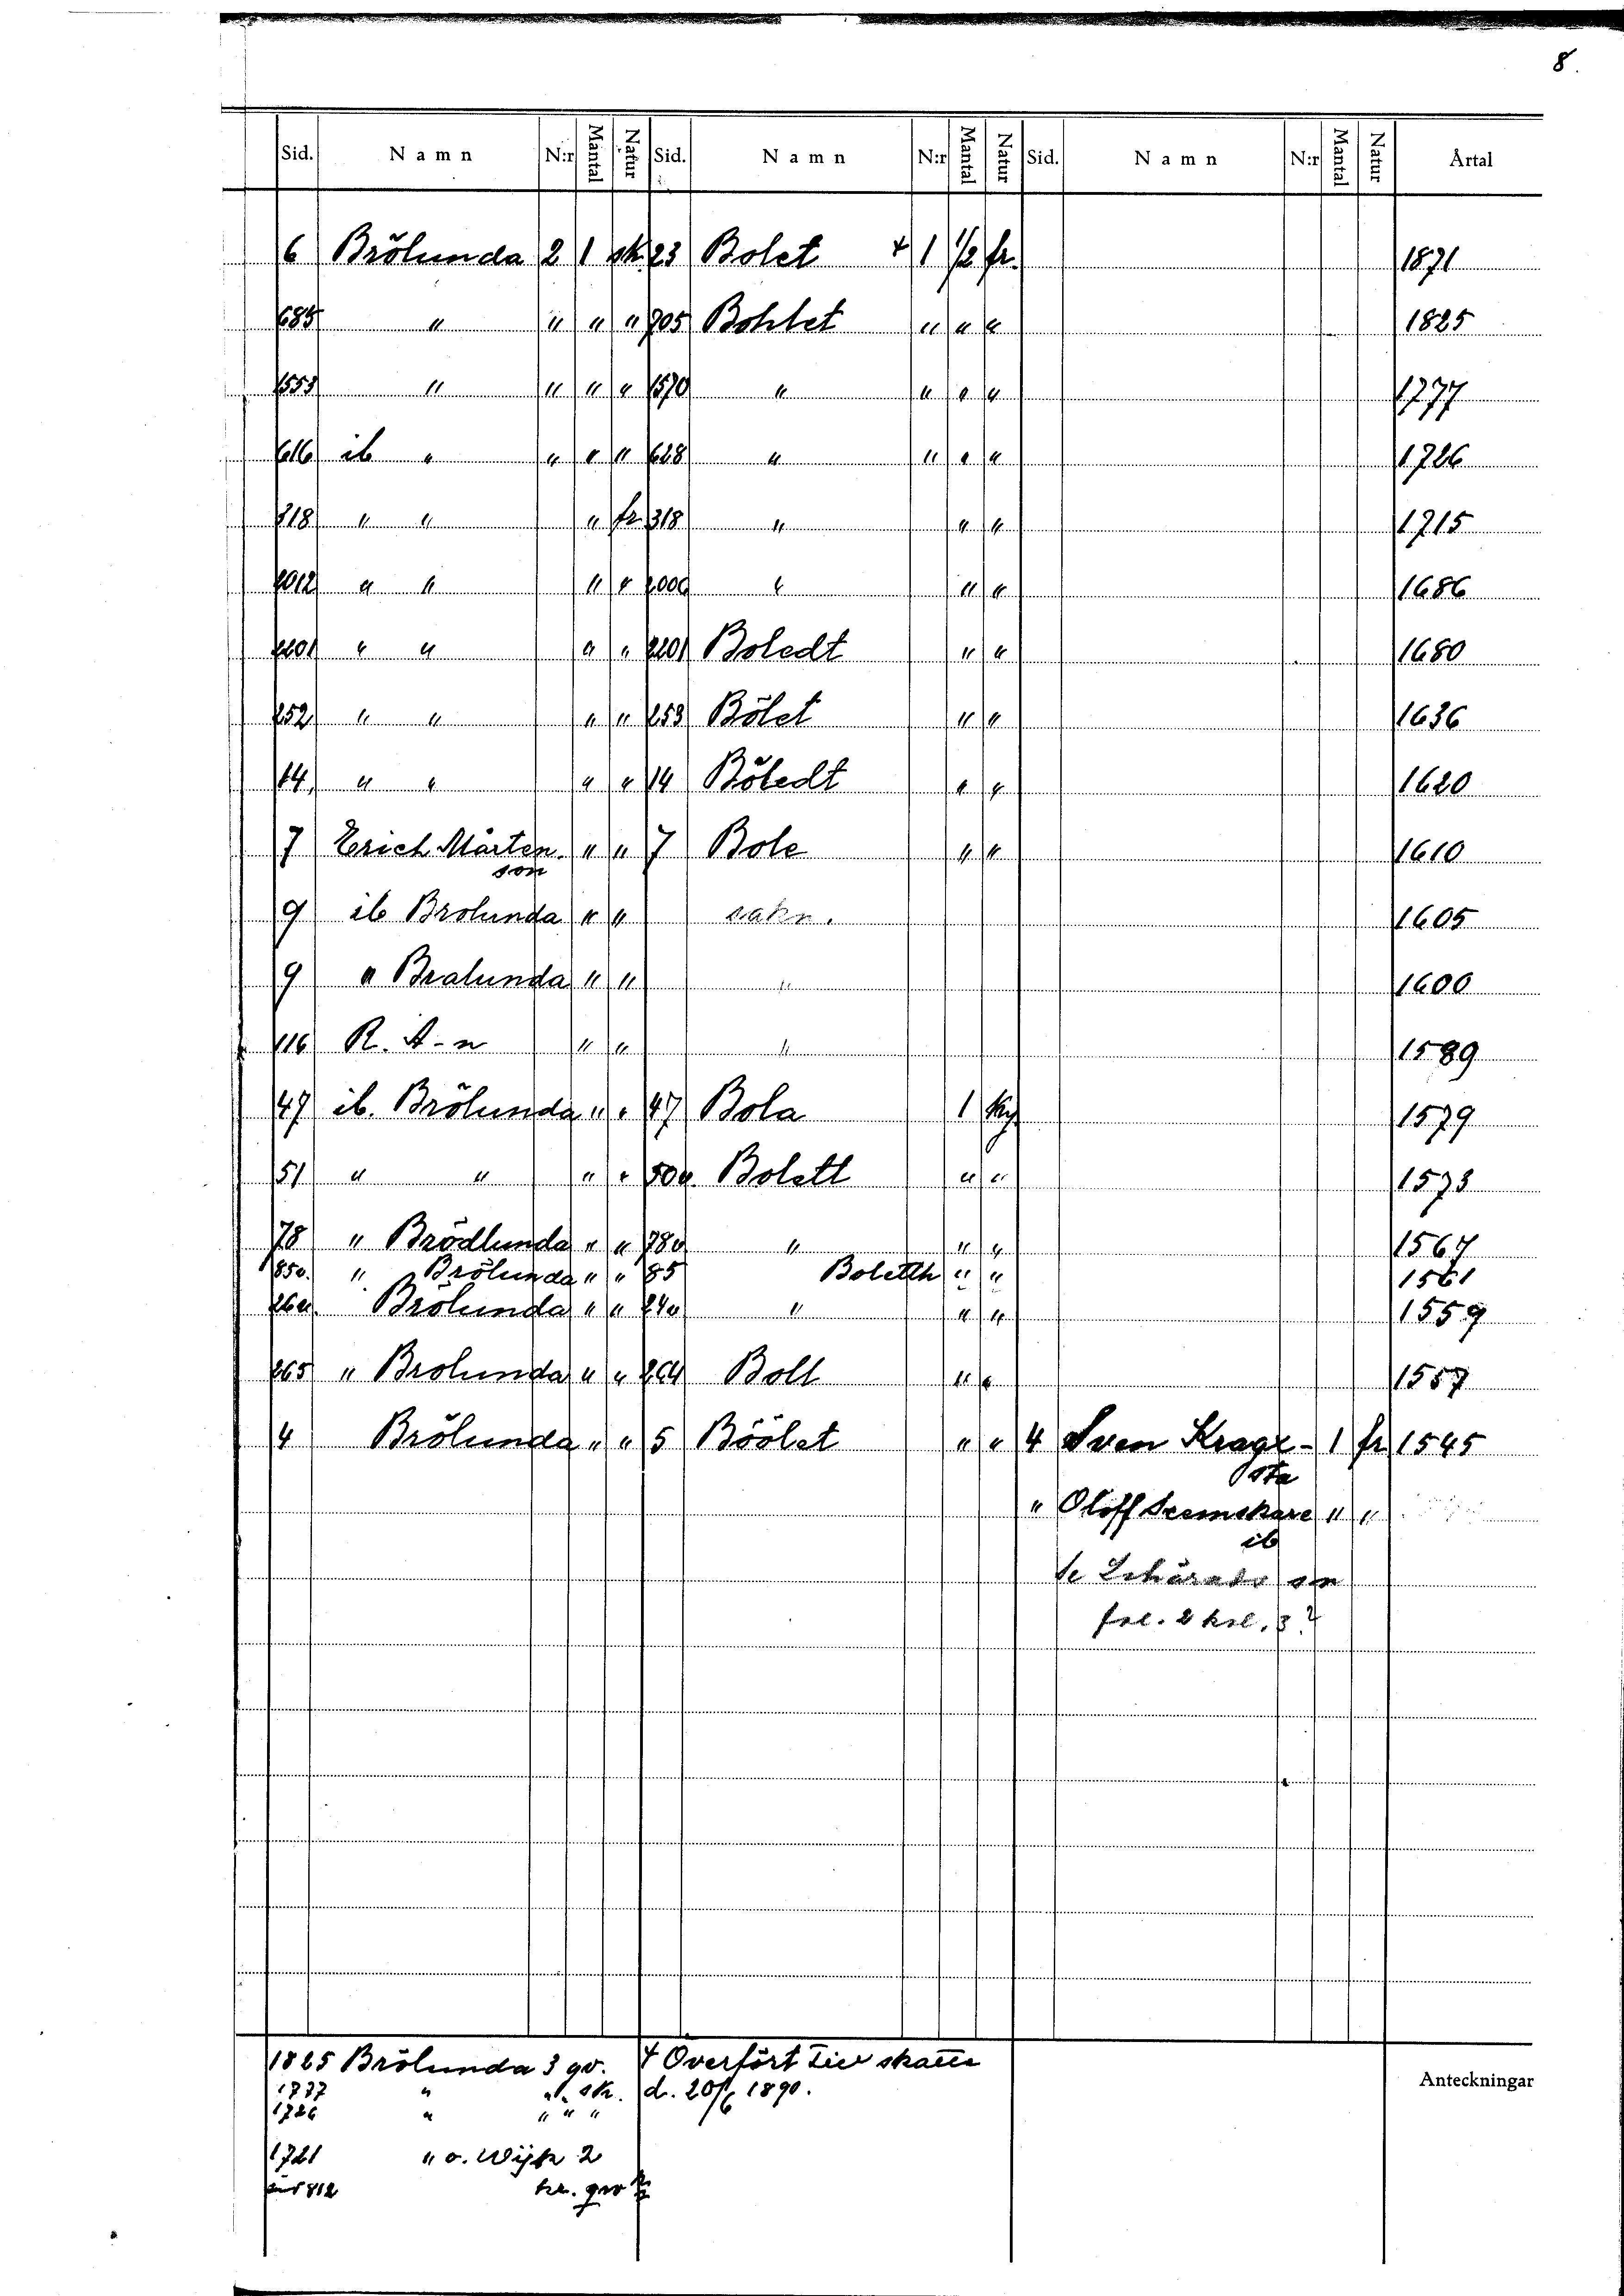 8.
Sid. Namn N:r Mantal Natur Sid. Namn N:r Mantal Natur Sid. Namn N:r Mantal Natur Årtal
6 Brõlunda 2 1 sk. 23 Bolet + 1 1/2 fr. 1871
685 " " " " 705 Bohlet " " " 1825
1553 " " " " 1570 " " " " 1777
616 ib " " " " 628 " " " " 1726
318 " " " fr 318 " " " 1715
2012 " " " " 2009 " " " 1686
2201 " " " " 2201 Boledt " " 1680
252 " " " " 253 Bõlet " " 1636
14 " " " " 14 Bõledt " " 1620
7 Erich Mårten- " " 7 Bole " " 1610
son
9 ib Brolunda " " sakn. 1605
9 " Bralunda " " " 1600
116 R. A-n " " " 1589
47 ib. Brõlunda " " 47 Bola 1 Ky 1579
51 " " " " 50v Bolett " " 1573
78 " Brõdlunda " " 78v " " " 1567
85v. " Brõlunda " " 85 Boletth " " 1561
26v. Brõlunda " " 24v " " " 1559
265 " Brolunda " " 264 Boll " " 1557
4 Brõlunda " " 5 Böölet " " 4 Sven Krage- 1 fr 1545
sta
" Oloff " "
ib
1825 Brõlunda 3 qv.
" " sk.
1726 " " " "
1721 " o. Wijk 2
+ Överfört till skatte
d. 20/6 1890.
Anteckningar